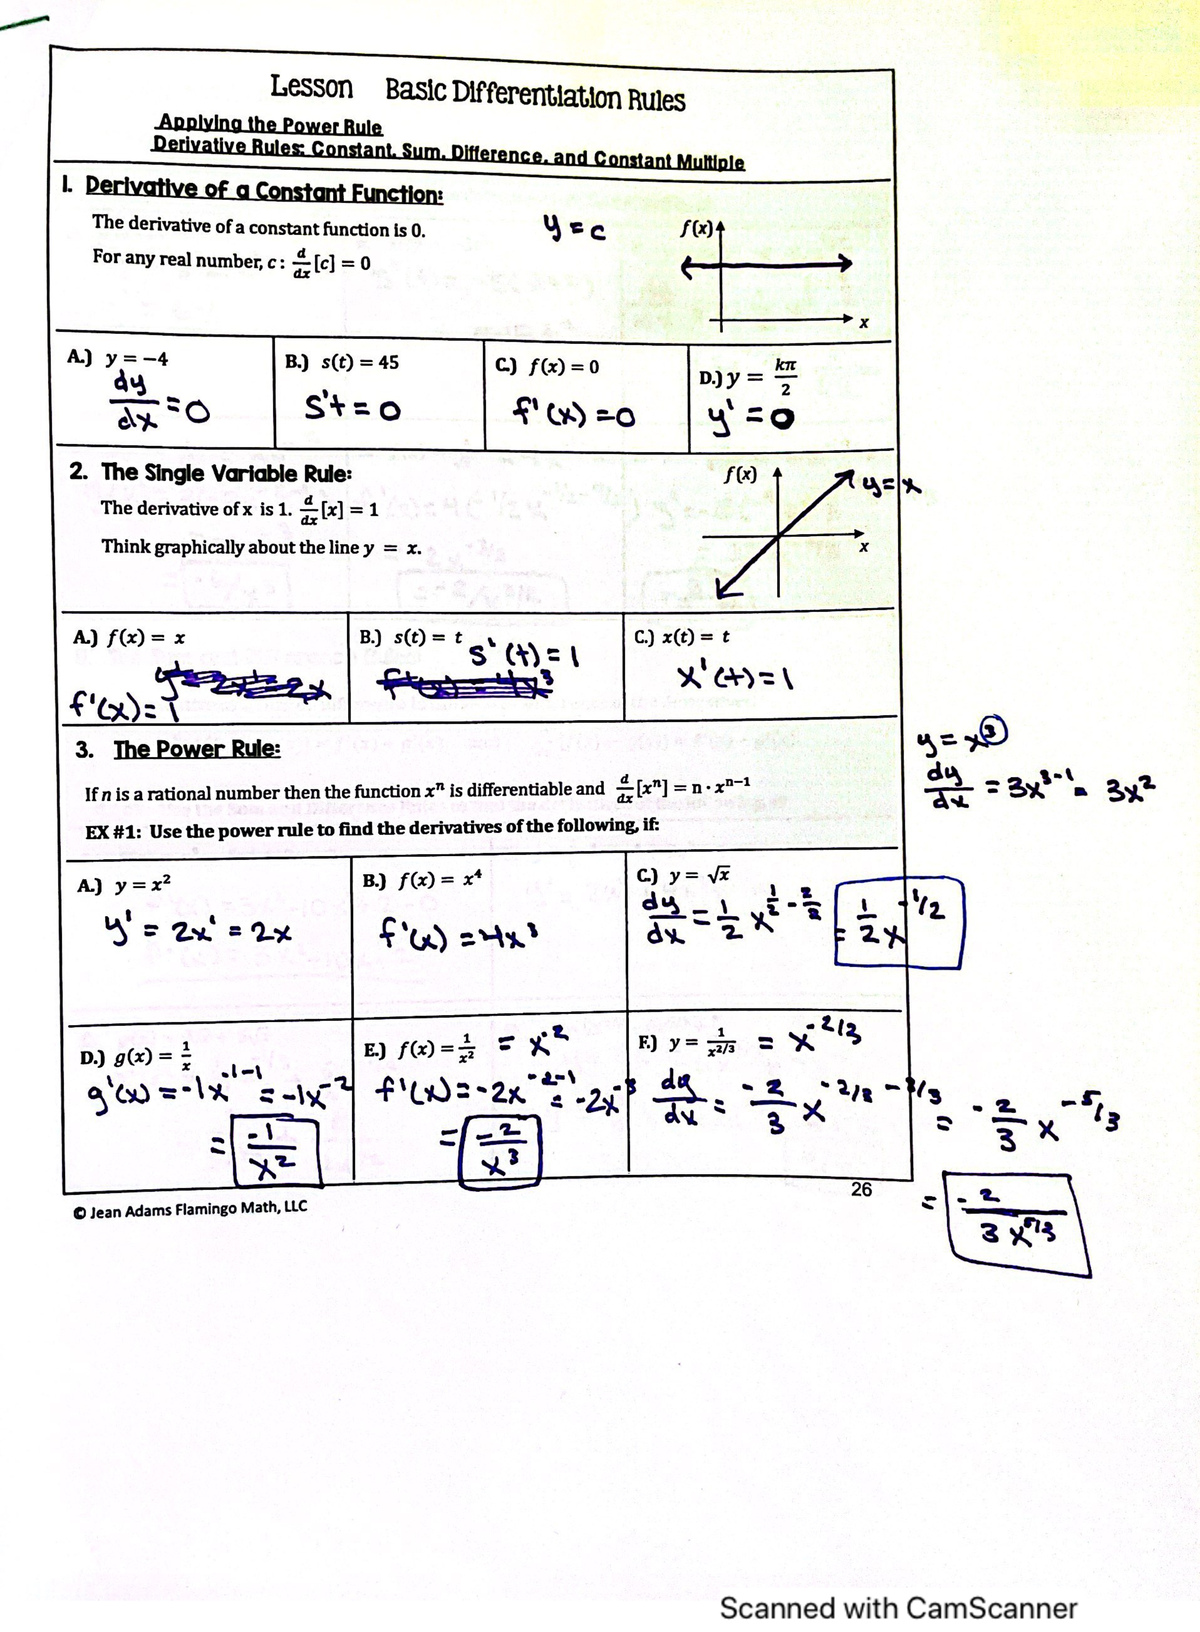 Lesson Basic Differentiation Rules
Applying the Power Rule
Derivative Rules: Constant, Sum, Difference, and Constant Multiple
1. Derivative of a Constant Function:
The derivative of a constant function is 0.
y = c
f(x)
For any real number, c: d/dx [c] = 0
x
A.) y = −4
dy/dx = 0
B.) s(t) = 45
s't = 0
C.) f(x) = 0
f'(x) = 0
D.) y = kπ/2
y' = 0
2. The Single Variable Rule:
f(x)
y = x
The derivative of x is 1. d/dx [x] = 1
Think graphically about the line y = x.
x
A.) f(x) = x
f'(x) = 1
B.) s(t) = t
s'(t) = 1
C.) x(t) = t
x'(t) = 1
3. The Power Rule:
y = x³
If n is a rational number then the function xⁿ is differentiable and d/dx [xⁿ] = n · xⁿ⁻¹
dy/dx = 3x³⁻¹ = 3x²
EX #1: Use the power rule to find the derivatives of the following, if:
A.) y = x²
y' = 2x¹ = 2x
B.) f(x) = x⁴
f'(x) = 4x³
C.) y = √x
dy/dx = 1/2 x^(1/2 - 2/2) = 1/2 x^(-1/2)
D.) g(x) = 1/x
g'(x) = -1x^(-1-1) = -1x^(-2)
= -1/x²
E.) f(x) = 1/x² = x^(-2)
f'(x) = -2x^(-2-1) = -2x^(-3)
= -2/x³
F.) y = 1/x^(2/3) = x^(-2/3)
dy/dx = -2/3 x^(-2/3 - 3/3) = -2/3 x^(-5/3)
= -2/(3x^(5/3))
26
© Jean Adams Flamingo Math, LLC
Scanned with CamScanner